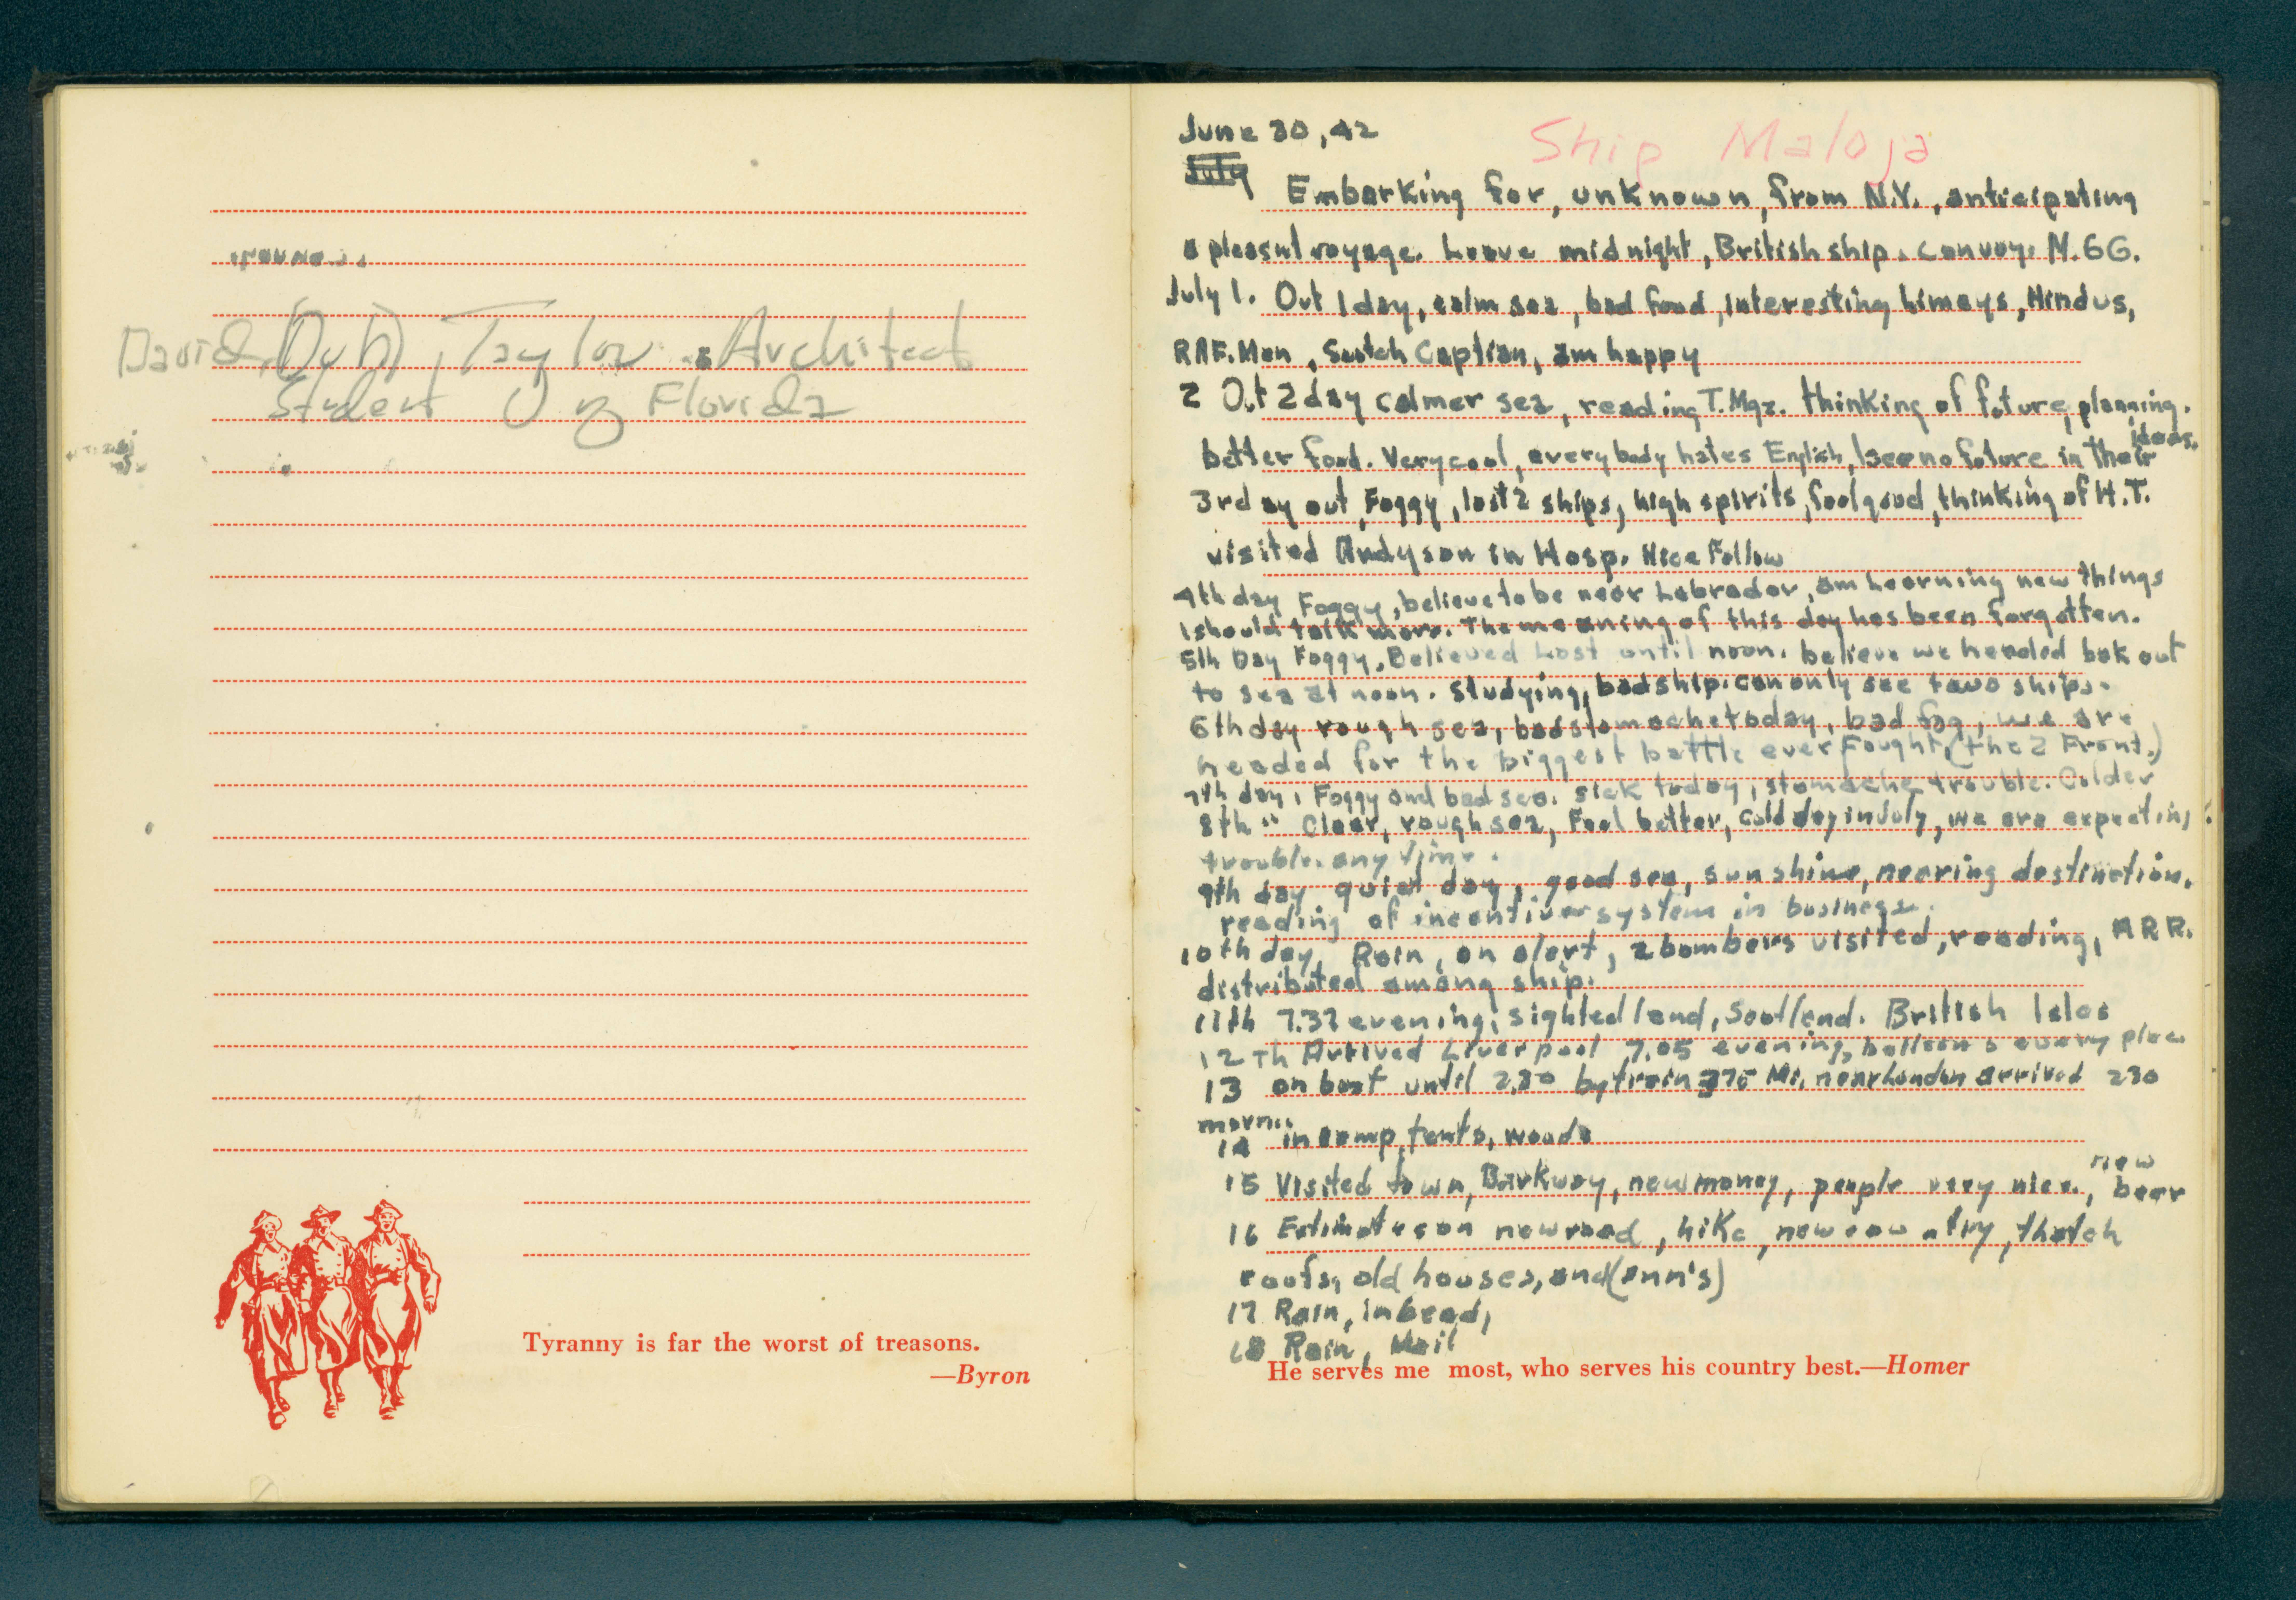 David, (Dub), Taylor. Architect
Student U of Florida
Tyranny is far the worst of treasons.
—Byron
June 30, 42
Ship Maloja
July
Embarking for, unknown, from N.Y., anticipating
a pleasnt voyage. Leave midnight, British ship. Convoy. N.6G.
July 1. Out 1 day, calm sea, bad food, interesting limeys, Hindus,
RAF. Men, Scotch Captian, am happy
2 Out 2 day calmer sea, reading T.Mgz. thinking of future, planning.
better food. Very cool, everybody hates English, I see no future in their ideas.
3rd ay out, Foggy, lost 2 ships, high spirits, feel good, thinking of H.T.
visited Andyson in Hosp. Nice Fellow
4th day Foggy, believe to be near Labrador, am Learning new things
I should talk more. The meaning of this day has been forgotten.
5th Day Foggy. Believed Lost until noon. believe we headed bak out
to sea at noon. Studying, bad ship. can only see two ships.
6th day rough sea, bad stomache today, bad fog, we are
headed for the biggest battle ever Fought, (the 2 Front.)
7th day, Foggy and bad sea. sick today, stomache trouble. Colder
8th " Clear, rough sea, Feel better, cold day in July, we are expecting
trouble. any time.
9th day quiet day, good sea, sunshine, nearing destination.
reading of incentive system in business.
10th day, Rain, on alert, 2 bombers visited, reading, A R R.
distributed among ship.
11th 7.37 evening, sighted land, Scotland. British Isles
12 Th Arrived Liverpool 7.05 evening, balloons every place
13 on boat until 2.30 by train 375 Mi, near London arrived 230
morn..
14 in camp, tents, woods
15 Visited town, Barkway, new money, people very nice, new beer
16 Estimates on new road, hike, new country, thatch
roofs, old houses, and (enn's)
17 Rain, in bead,
18 Rain, Mail
He serves me most, who serves his country best.—Homer